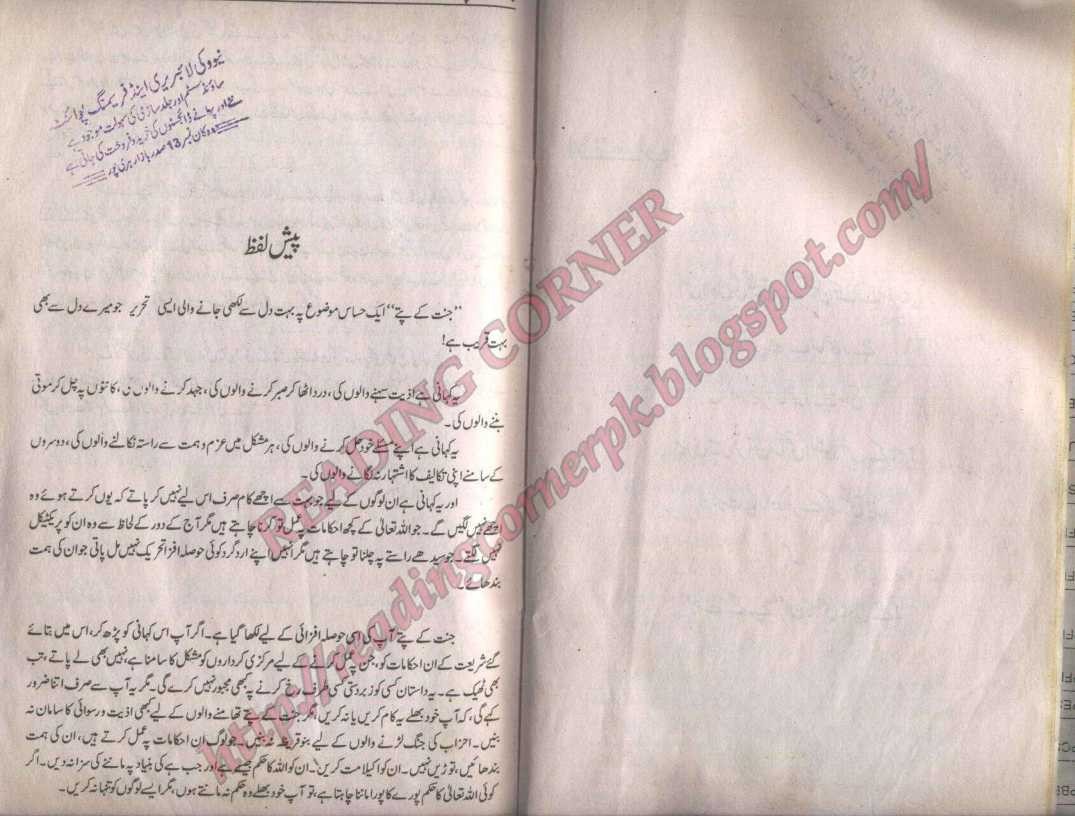 نیو وکی لائبریری اینڈ فریمنگ پوائنٹ
ساؤنڈ سسٹم اور جلد سازی کی سہولت موجود ہے
نئے اور پرانے ڈائجسٹوں کی خرید و فروخت کی جاتی ہے
دوکان نمبر 13 صدر بازار ہری پور
پیش لفظ
”جنت کے پتے“ ایک حساس موضوع پہ بہت دل سے لکھی جانے والی ایسی تحریر جو میرے دل سے بھی
بہت قریب ہے!
یہ کہانی ہے اذیت سہنے والوں کی، درد اٹھا کر صبر کرنے والوں کی، جہد کرنے والوں کی، کانٹوں پہ چل کر موتی
بننے والوں کی۔
یہ کہانی ہے اپنے مسئلے خود حل کرنے والوں کی، ہر مشکل میں عزم و ہمت سے راستہ نکالنے والوں کی، دوسروں
کے سامنے اپنی تکالیف کا اشتہار نہ لگانے والوں کی۔
اور یہ کہانی ہے ان لوگوں کے لیے جو بہت سے اچھے کام صرف اس لیے نہیں کر پاتے کہ یوں کرتے ہوئے وہ
اچھے نہیں لگیں گے۔ جو اللہ تعالیٰ کے کچھ احکامات پہ عمل تو کرنا چاہتے ہیں مگر آج کے دور کے لحاظ سے وہ ان کو پریکٹیکل
نہیں لگتے۔ جو سیدھے راستے پہ چلنا تو چاہتے ہیں مگر انہیں اپنے اردگرد کوئی حوصلہ افزا تحریک نہیں مل پاتی جو ان کی ہمت
بندھائے۔
جنت کے پتے آپ کی اسی حوصلہ افزائی کے لیے لکھا گیا ہے۔ اگر آپ اس کہانی کو پڑھ کر، اس میں بتائے
گئے شریعت کے ان احکامات کو، جن پہ عمل کرنے کے لیے مرکزی کرداروں کو مشکل کا سامنا ہے، نہیں بھی لے پاتے، تب
بھی ٹھیک ہے۔ یہ داستان کسی کو زبردستی کسی طرف رخ کرنے پہ کبھی مجبور نہیں کرے گی۔ مگر یہ آپ سے صرف اتنا ضرور
کہے گی، کہ آپ خود بھلے یہ کام کریں یا نہ کریں، مگر جنت کے پتے تھامنے والوں کے لیے کبھی اذیت و رسوائی کا سامان نہ
بنیں۔ احزاب کی جنگ لڑنے والوں کے لیے بنو قریظہ نہ بنیں۔ جو لوگ ان احکامات پہ عمل کرتے ہیں، ان کی ہمت
بندھائیں، توڑیں نہیں۔ ان کو اکیلا مت کریں۔ ان کو اللہ کا حکم جیسے ہے اور جب ہے کی بنیاد پہ ماننے کی سزا نہ دیں۔ اگر
کوئی اللہ تعالیٰ کا حکم پورے کا پورا ماننا چاہتا ہے، تو آپ خود بھلے وہ حکم نہ مانتے ہوں، مگر ایسے لوگوں کو تنہا نہ کریں۔
READING CORNER
http://readingcornerpk.blogspot.com/